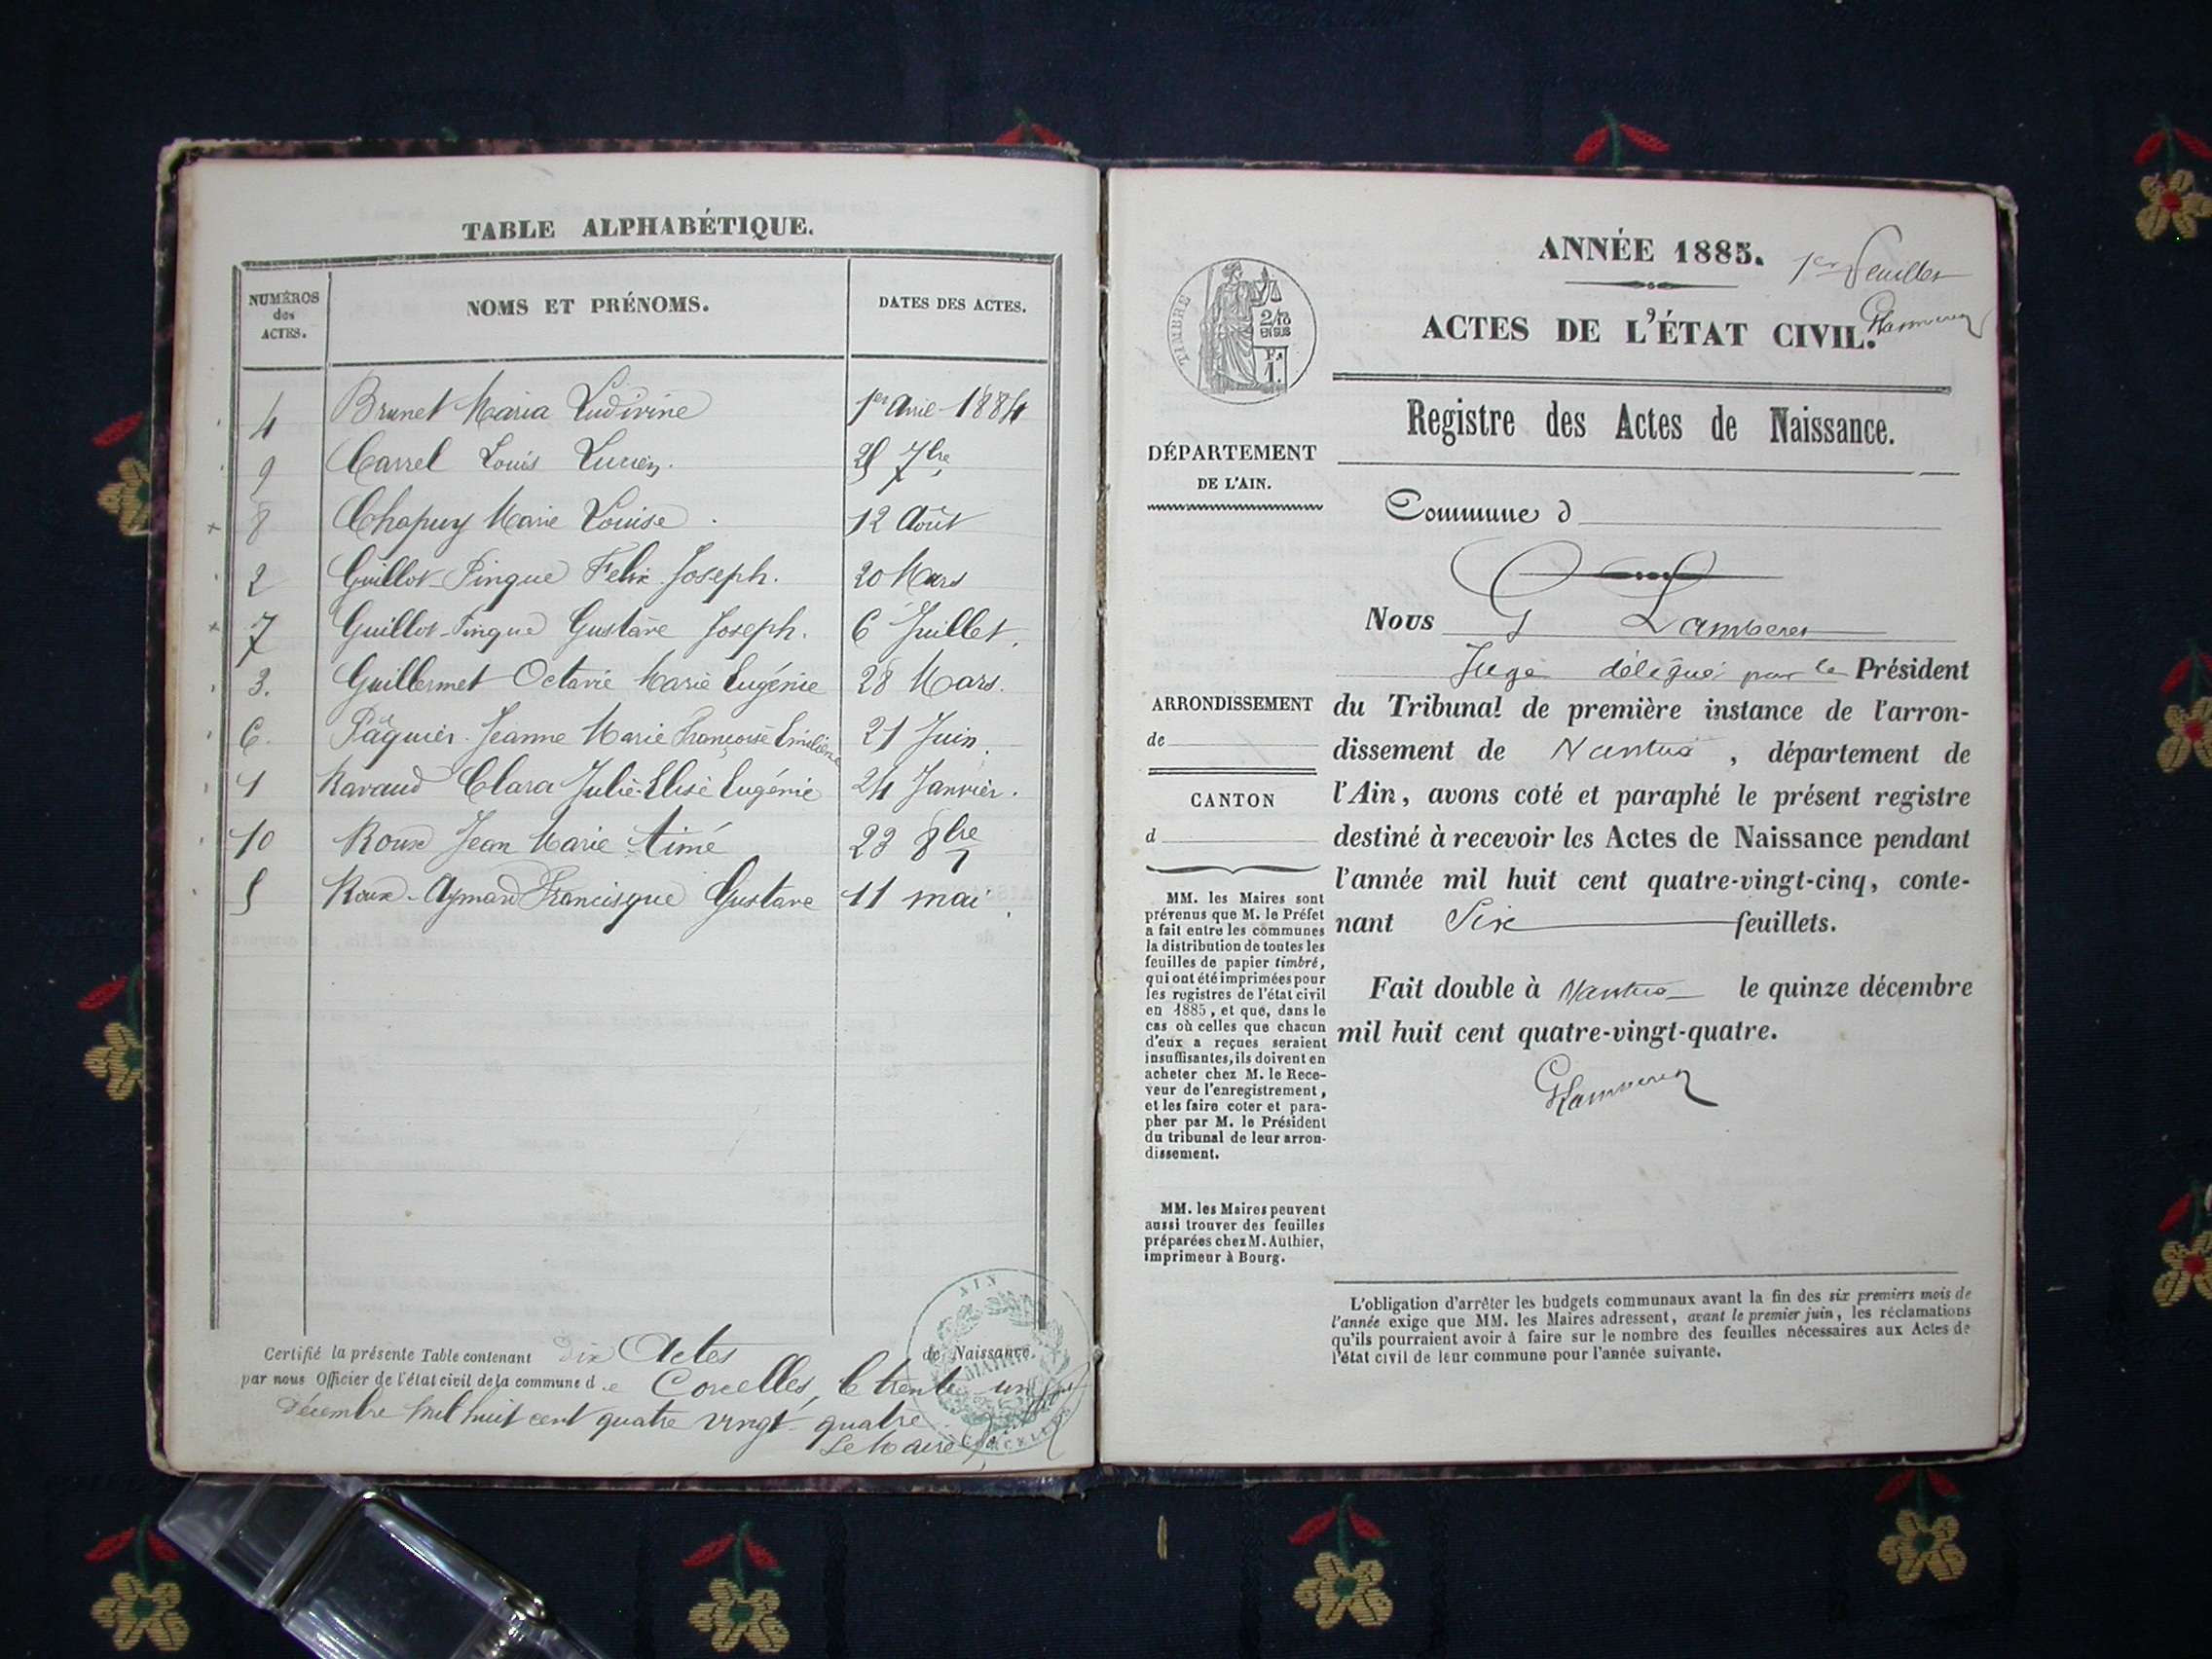 TABLE ALPHABÉTIQUE.
NUMÉROS des ACTES. NOMS ET PRÉNOMS. DATES DES ACTES.
4 Brunet Maria Ludivine 1er Avril 1884
9 Carrel Louis Lucien. 25 7bre
8 Chapuy Marie Louise. 12 Août
2 Guillot-Pingue Felix Joseph. 20 Mars
7 Guillot-Pingue Gustave Joseph. 6 Juillet.
3. Guillermet Octavie Marie Eugénie 28 Mars.
6. Pâquier Jeanne Marie Françoise Emilienne 21 Juin.
1 Ravaud Clara Julie-Elise Eugénie 24 Janvier.
10 Roux Jean Marie Aimé 23 8bre
5 Roux-Aymard Francisque Gustave 11 mai
Certifié la présente Table contenant dix Actes de Naissance
par nous Officier de l'état civil de la commune de Corcelles, le trente un
décembre mil huit cent quatre vingt-quatre
Le Maire
AIN
MAIRIE
CORCELLES
ANNÉE 1885. 1er feuillet
ACTES DE L'ÉTAT CIVIL.
TIMBRE
2/10
EN SUS
Fc
1.
Registre des Actes de Naissance.
DÉPARTEMENT
DE L'AIN.
Commune d
Nous G Lambert
Juge délégué par le Président
ARRONDISSEMENT
de
CANTON
d
du Tribunal de première instance de l'arron-
dissement de Nantua, département de
l'Ain, avons coté et paraphé le présent registre
destiné à recevoir les Actes de Naissance pendant
l'année mil huit cent quatre-vingt-cinq, conte-
nant Six feuillets.
Fait double à Nantua le quinze décembre
mil huit cent quatre-vingt-quatre.
MM. les Maires sont
prévenus que M. le Préfet
a fait entre les communes
la distribution de toutes les
feuilles de papier timbré,
qui ont été imprimées pour
les registres de l'état civil
en 1885, et que, dans le
cas où celles que chacun
d'eux a reçues seraient
insuffisantes, ils doivent en
acheter chez M. le Rece-
veur de l'enregistrement,
et les faire coter et para-
pher par M. le Président
du tribunal de leur arron-
dissement.
MM. les Maires peuvent
aussi trouver des feuilles
préparées chez M. Authier,
imprimeur à Bourg.
L'obligation d'arrêter les budgets communaux avant la fin des six premiers mois de
l'année exige que MM. les Maires adressent, avant le premier juin, les réclamations
qu'ils pourraient avoir à faire sur le nombre des feuilles nécessaires aux Actes de
l'état civil de leur commune pour l'année suivante.